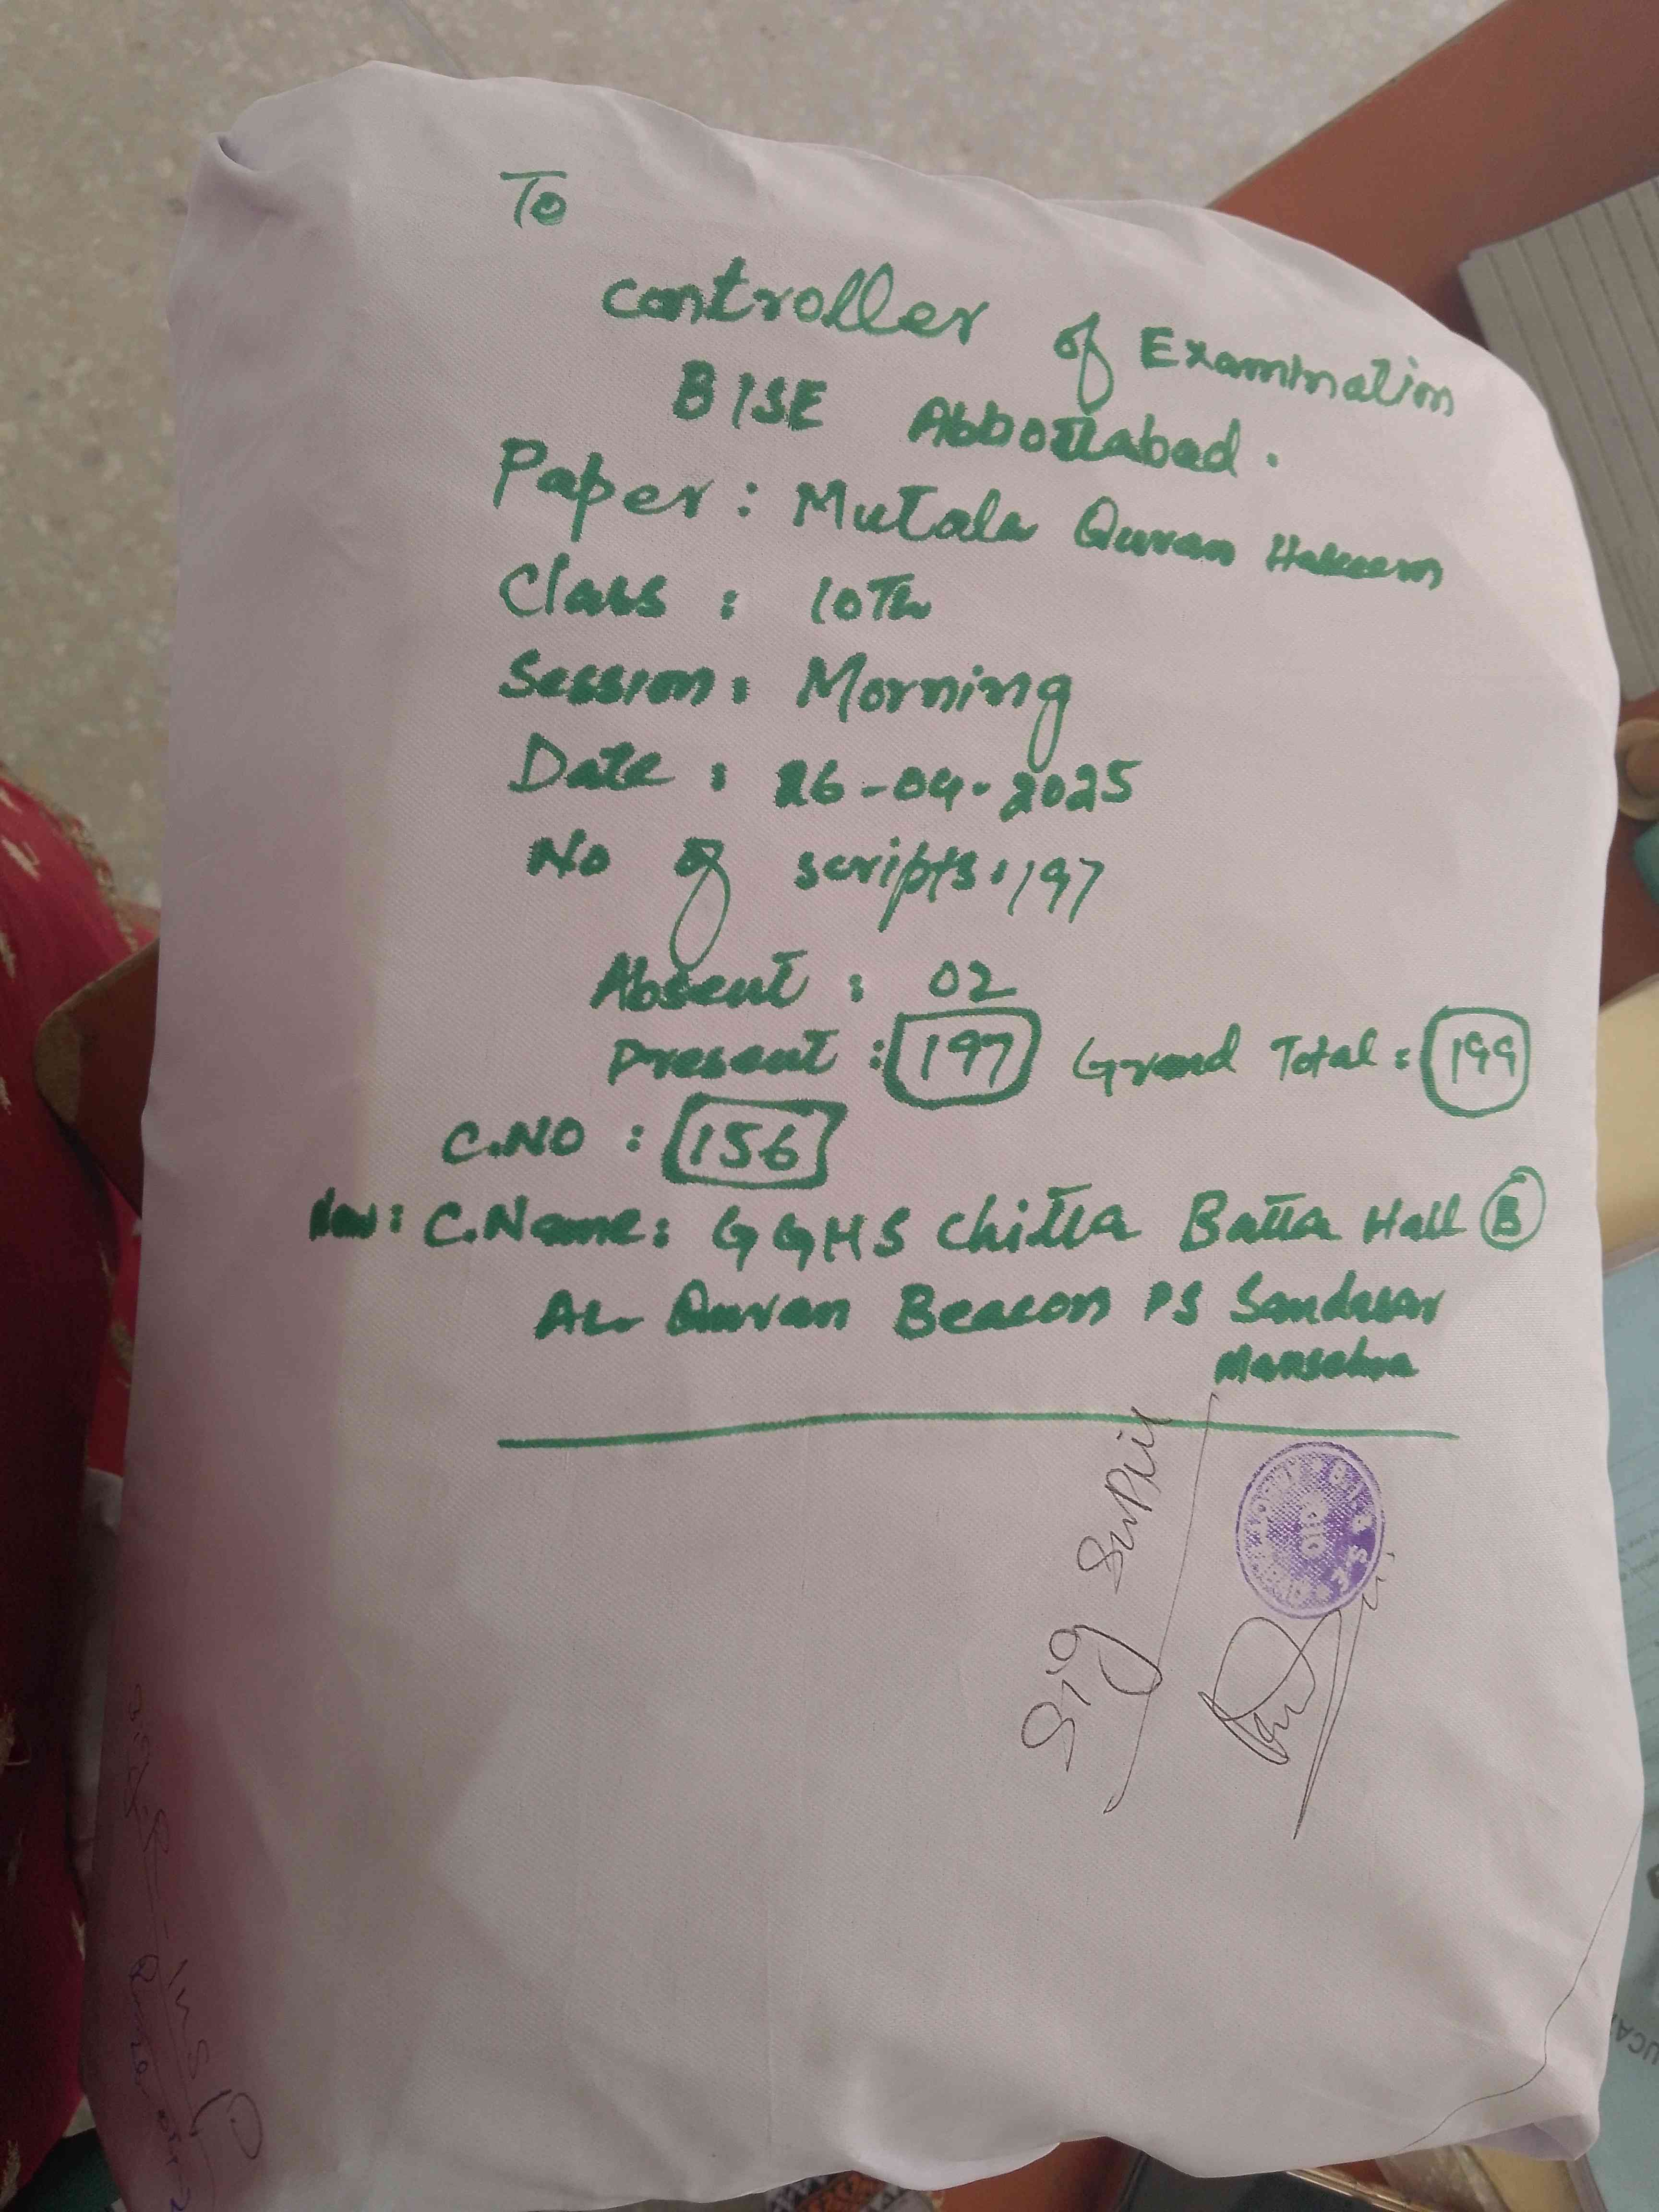 To
Controller of Examination
BISE Abbottabad.
Paper: Mutala Quran Hakeem
Class: 10Th
Session: Morning
Date: 26-04-2025
No of scripts: 197
Absent: 02
Present: 197 Grand Total: 199
C.NO: 156
C.Name: GGHS Chitta Batta Hall B
AL Quran Beacon PS Sandasar
Mansehra
Sig